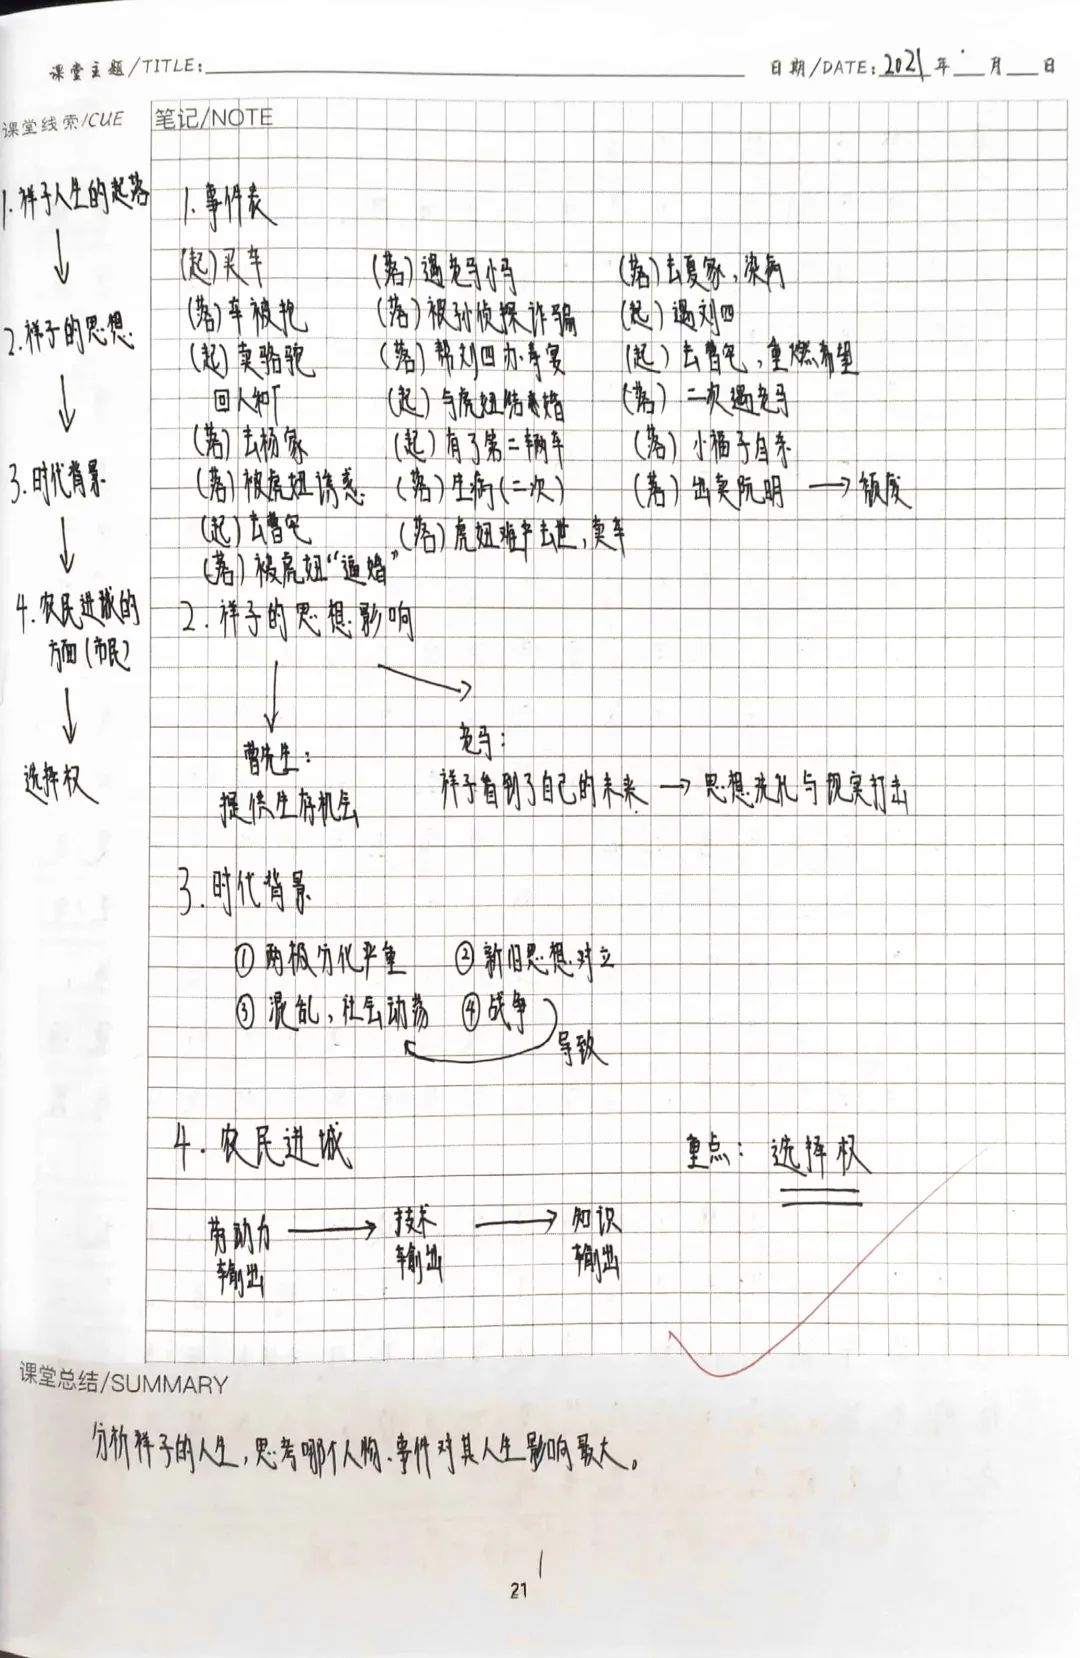 课堂主题/TITLE: 日期/DATE: 2021年 月 日
课堂线索/CUE
1.祥子人生的起落
↓
2.祥子的思想
↓
3.时代背景
↓
4.农民进城的
方面(市民)
↓
选择权
笔记/NOTE
1.事件表
(起)买车
(落)车被抢
(起)卖骆驼
回人和厂
(落)去杨家
(落)被虎妞诱惑
(起)去曹宅
(落)被虎妞“逼婚”
(落)遇老马小马
(落)被孙侦探诈骗
(落)帮刘四办寿宴
(起)与虎妞结婚
(起)有了第二辆车
(落)生病(二次)
(落)虎妞难产去世,卖车
(落)去夏家,染病
(起)遇刘四
(起)去曹宅,重燃希望
(落)二次遇老马
(落)小福子自杀
(落)出卖阮明→颓废
2.祥子的思想影响
曹先生:
提供生存机会
老马:
祥子看到了自己的未来→思想洗礼与现实打击
3.时代背景
①两极分化严重 ②新旧思想对立
③混乱,社会动荡 ④战争
导致
4.农民进城 重点:选择权
劳动力输出→技术输出→知识输出
课堂总结/SUMMARY
分析祥子的人生,思考哪个人物、事件对其人生影响最大。
21